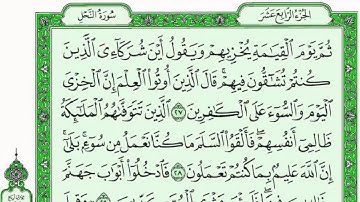 الجزء الرابع عشر
سورة النحل
ثُمَّ يَوْمَ ٱلْقِيَٰمَةِ يُخْزِيهِمْ وَيَقُولُ أَيْنَ شُرَكَآءِىَ ٱلَّذِينَ
كُنتُمْ تُشَٰٓقُّونَ فِيهِمْ ۚ قَالَ ٱلَّذِينَ أُوتُوا۟ ٱلْعِلْمَ إِنَّ ٱلْخِزْىَ
ٱلْيَوْمَ وَٱلسُّوٓءَ عَلَى ٱلْكَٰفِرِينَ ٢٧ ٱلَّذِينَ تَتَوَفَّىٰهُمُ ٱلْمَلَٰٓئِكَةُ
ظَالِمِىٓ أَنفُسِهِمْ ۖ فَأَلْقَوُا۟ ٱلسَّلَمَ مَا كُنَّا نَعْمَلُ مِن سُوٓءٍۭ ۚ بَلَىٰٓ
إِنَّ ٱللَّهَ عَلِيمٌۢ بِمَا كُنتُمْ تَعْمَلُونَ ٢٨ فَٱدْخُلُوٓا۟ أَبْوَٰبَ جَهَنَّمَ